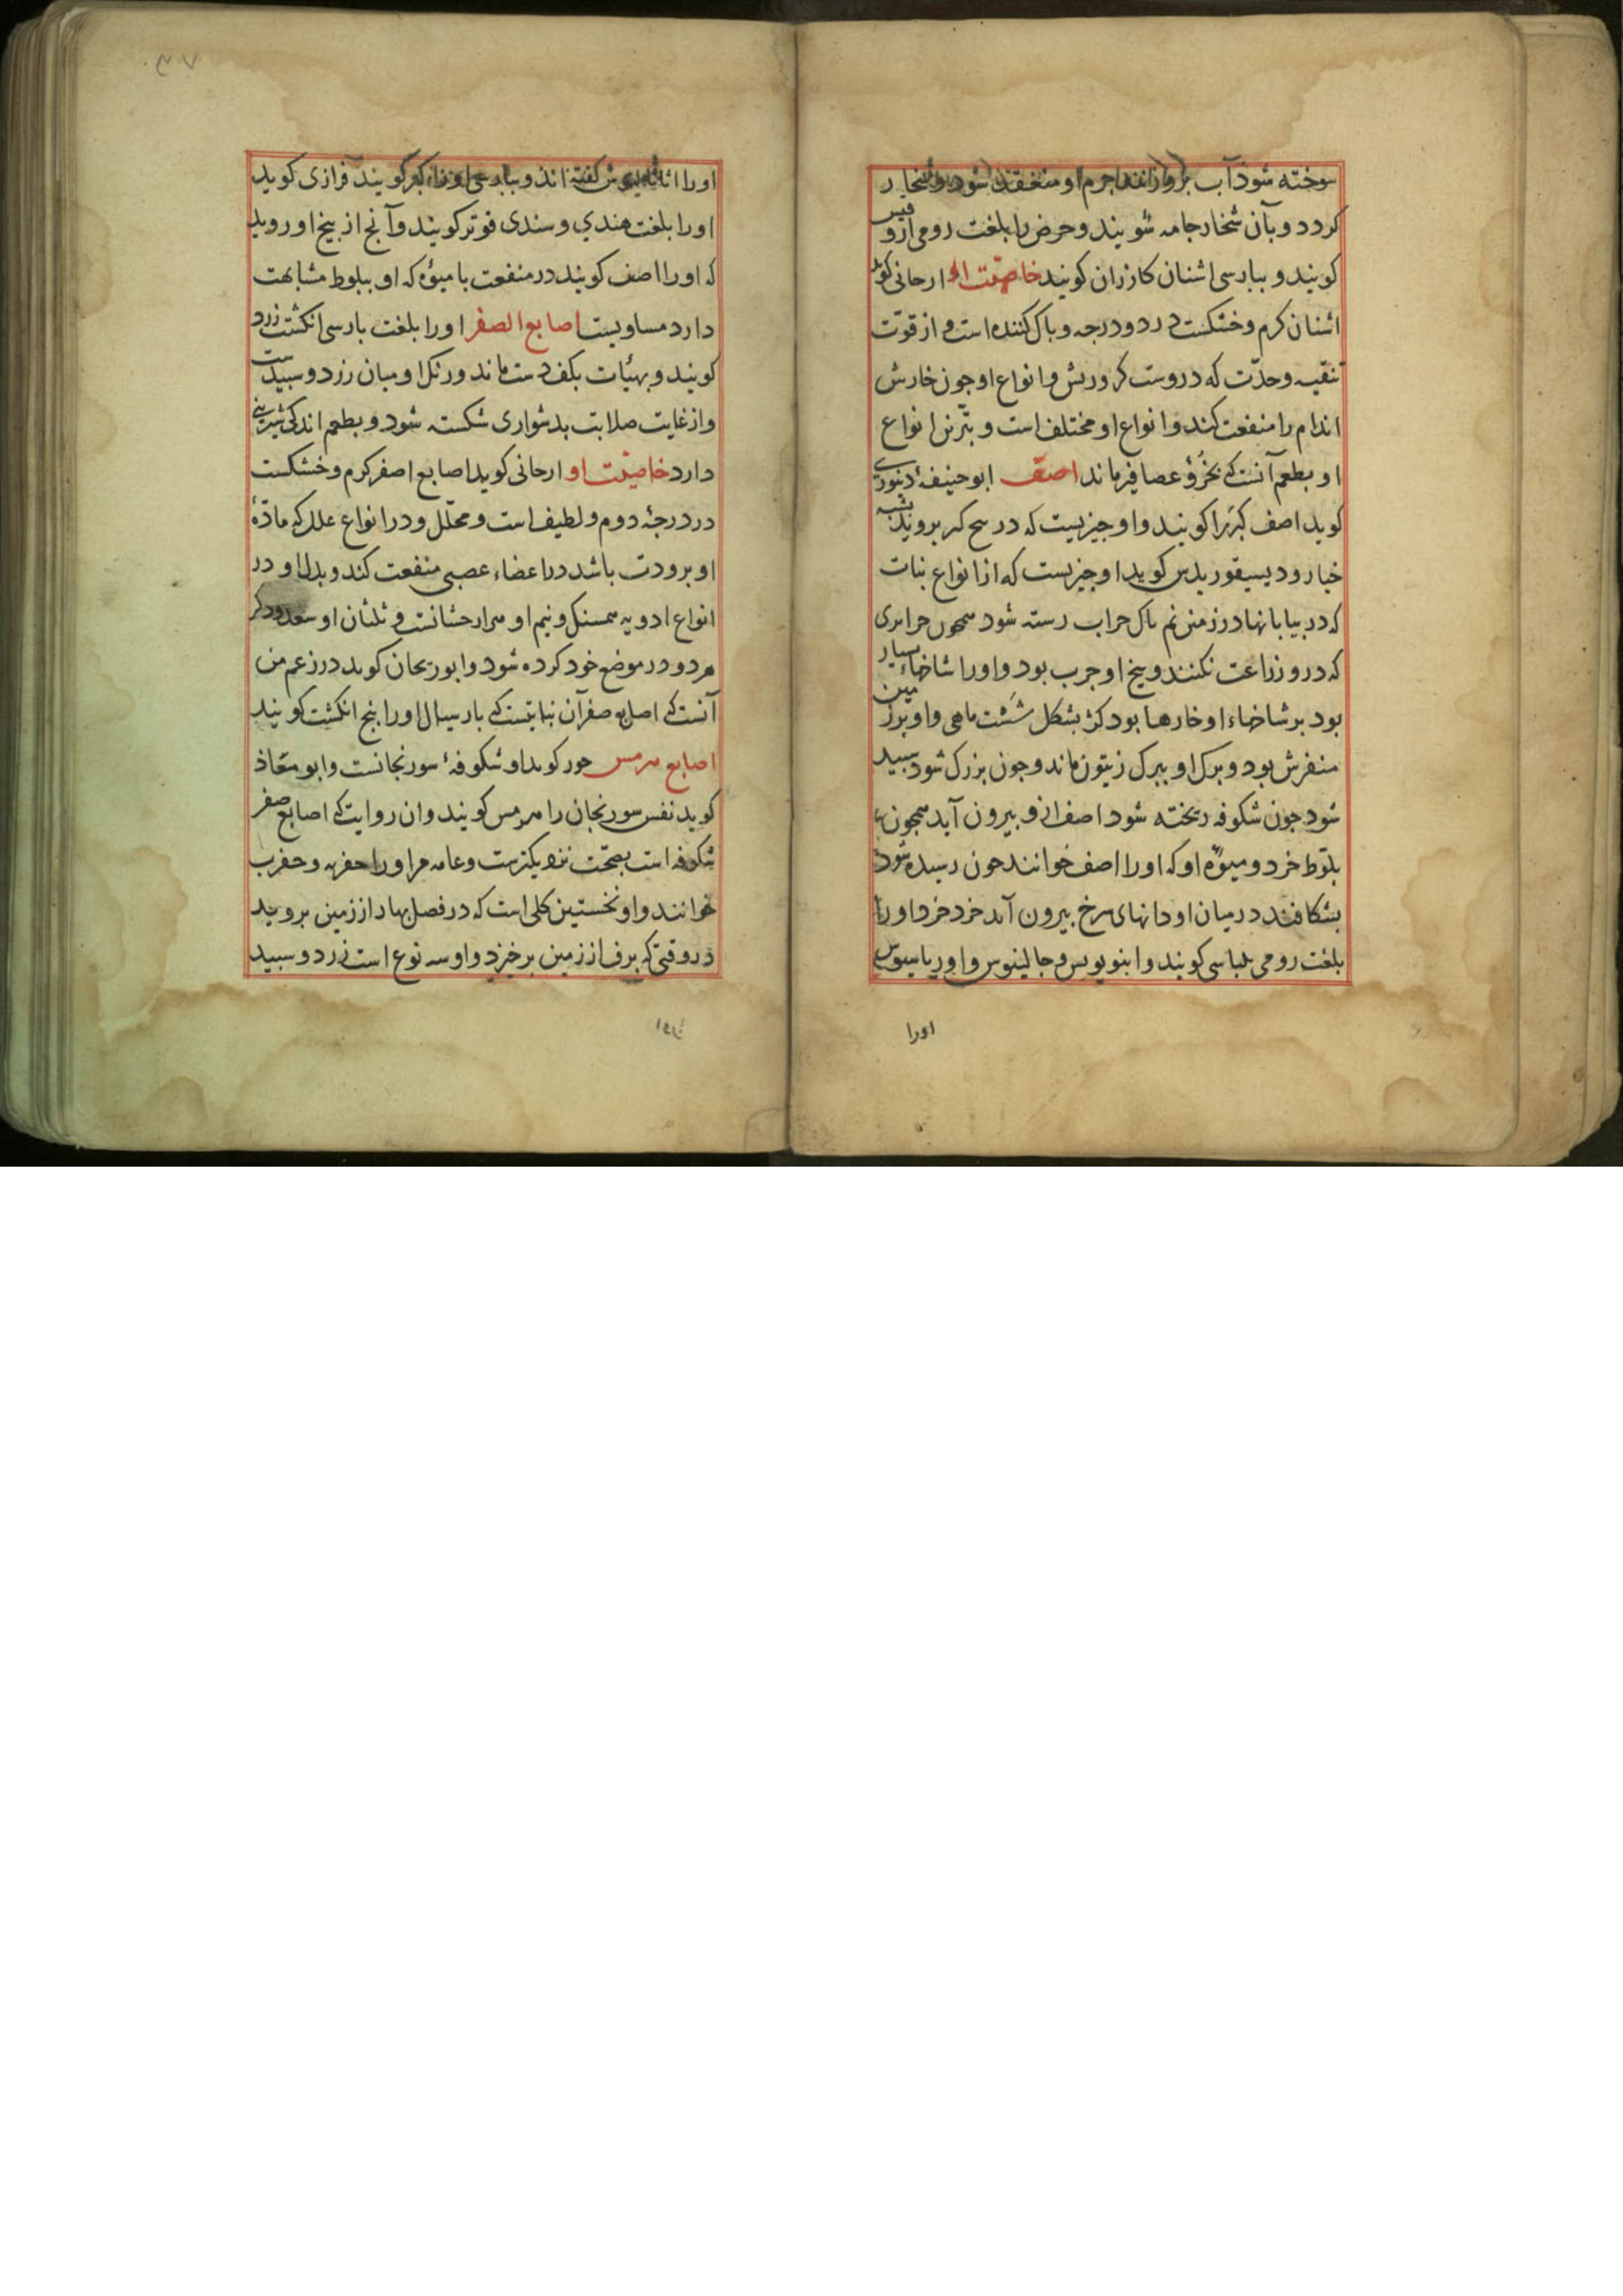 سوخته شود آب برو زنند اجرم او منعقد شود و شخار
کردد و بآن شخار جامه شویند و حرض را بلغت رومی اروفیس
کویند و ببارسی اشنان کازران کویند خاصیّت او ارجانی کوید
اشنان کرم و خشکست در دو درجه و باک کننده است و از قوّت
تنقیه و حدّت که دروست کر و ریش و انواع او جون خارش
اندام را منفعت کند و انواع او مختلف است و بترین انواع
او بطعم آنست که بخرؤ عصافیر ماند اصف ابو حنیفهٔ دینوری
کوید اصف کبَر را کویند و او جیزیست که در بیخ کبر بروید بشبه
خیار و دیسیقوریدس کوید او جیزیست که از انواع نبات
که در بیابانها در زمین نم ناک خراب رسته شود همجون جزایری
که درو زراعت نکنند و بیخ او جرب بود و اورا شاخهاء بسیار
بود بر شاخهاء او خارها بود کژ بشکل شَست ماهی و او بر زمین
منفرش بود و برک او ببرک زیتون ماند و جون بزرک شود سبید
شود جون شکوفه ریخته شود اصف ازو بیرون آید همجون
بلّوط خرد و میوهٔ او که اورا اصف خوانند جون رسیده شود
بشکافند در میان او دانهای سرخ بیرون آید خرد خرد اورا
بلغت رومی بلباسی کویند و ابنویوس و جالینوس و اوریباسیوس
اورا
اورا کفته اند و ببارسی اورا کبر کویند فرازی کوید
اورا بلغت هندی و سندی فوتر کویند و آنج از بیخ او روید
که اورا اصف کویند در منفعت با میوهٔ که او ببلوط مشابهت
دارد مساویست اصابع الصفر اورا بلغت بارسی انکشت زرد
کویند و بهیٔات بکف دست ماند و رنک او میان زرد و سبیدست
و از غایت صلابت بدشواری شکسته شود و بطعم اندکی شیرینی
دارد خاصیّت او ارجانی کوید اصابع اصفر کرم و خشکست
در درجهٔ دوم و لطیف است و محلّل و در انواع علل که مادّهٔ
او برودت باشد در اعضاء عصبی منفعت کند و بدل او در
انواع ادویه همسنک و نیم او هزارجشانست و ثلثان او سعد و ذکر
هر دو در موضع خود کرده شود و ابو ریحان کوید در زعم من
آنست که اصابع صفر آن نباتیست که بارسیان اورا بنج انکشت کویند
اصابع هرمس حور کوید او شکوفهٔ سورنجانست و ابو معاذ
کوید نفس سورنجان را هرمس کویند و ان روایت که اصابع صفر
شکوفه است بصحّت نزدیکترست و عامه مر اورا حفریه و حفرب
خوانند و او نخستین کلی است که در فصل بهار از زمین بروید
در وقتی که برف از زمین برخیزد و او سه نوع است زرد و سبید